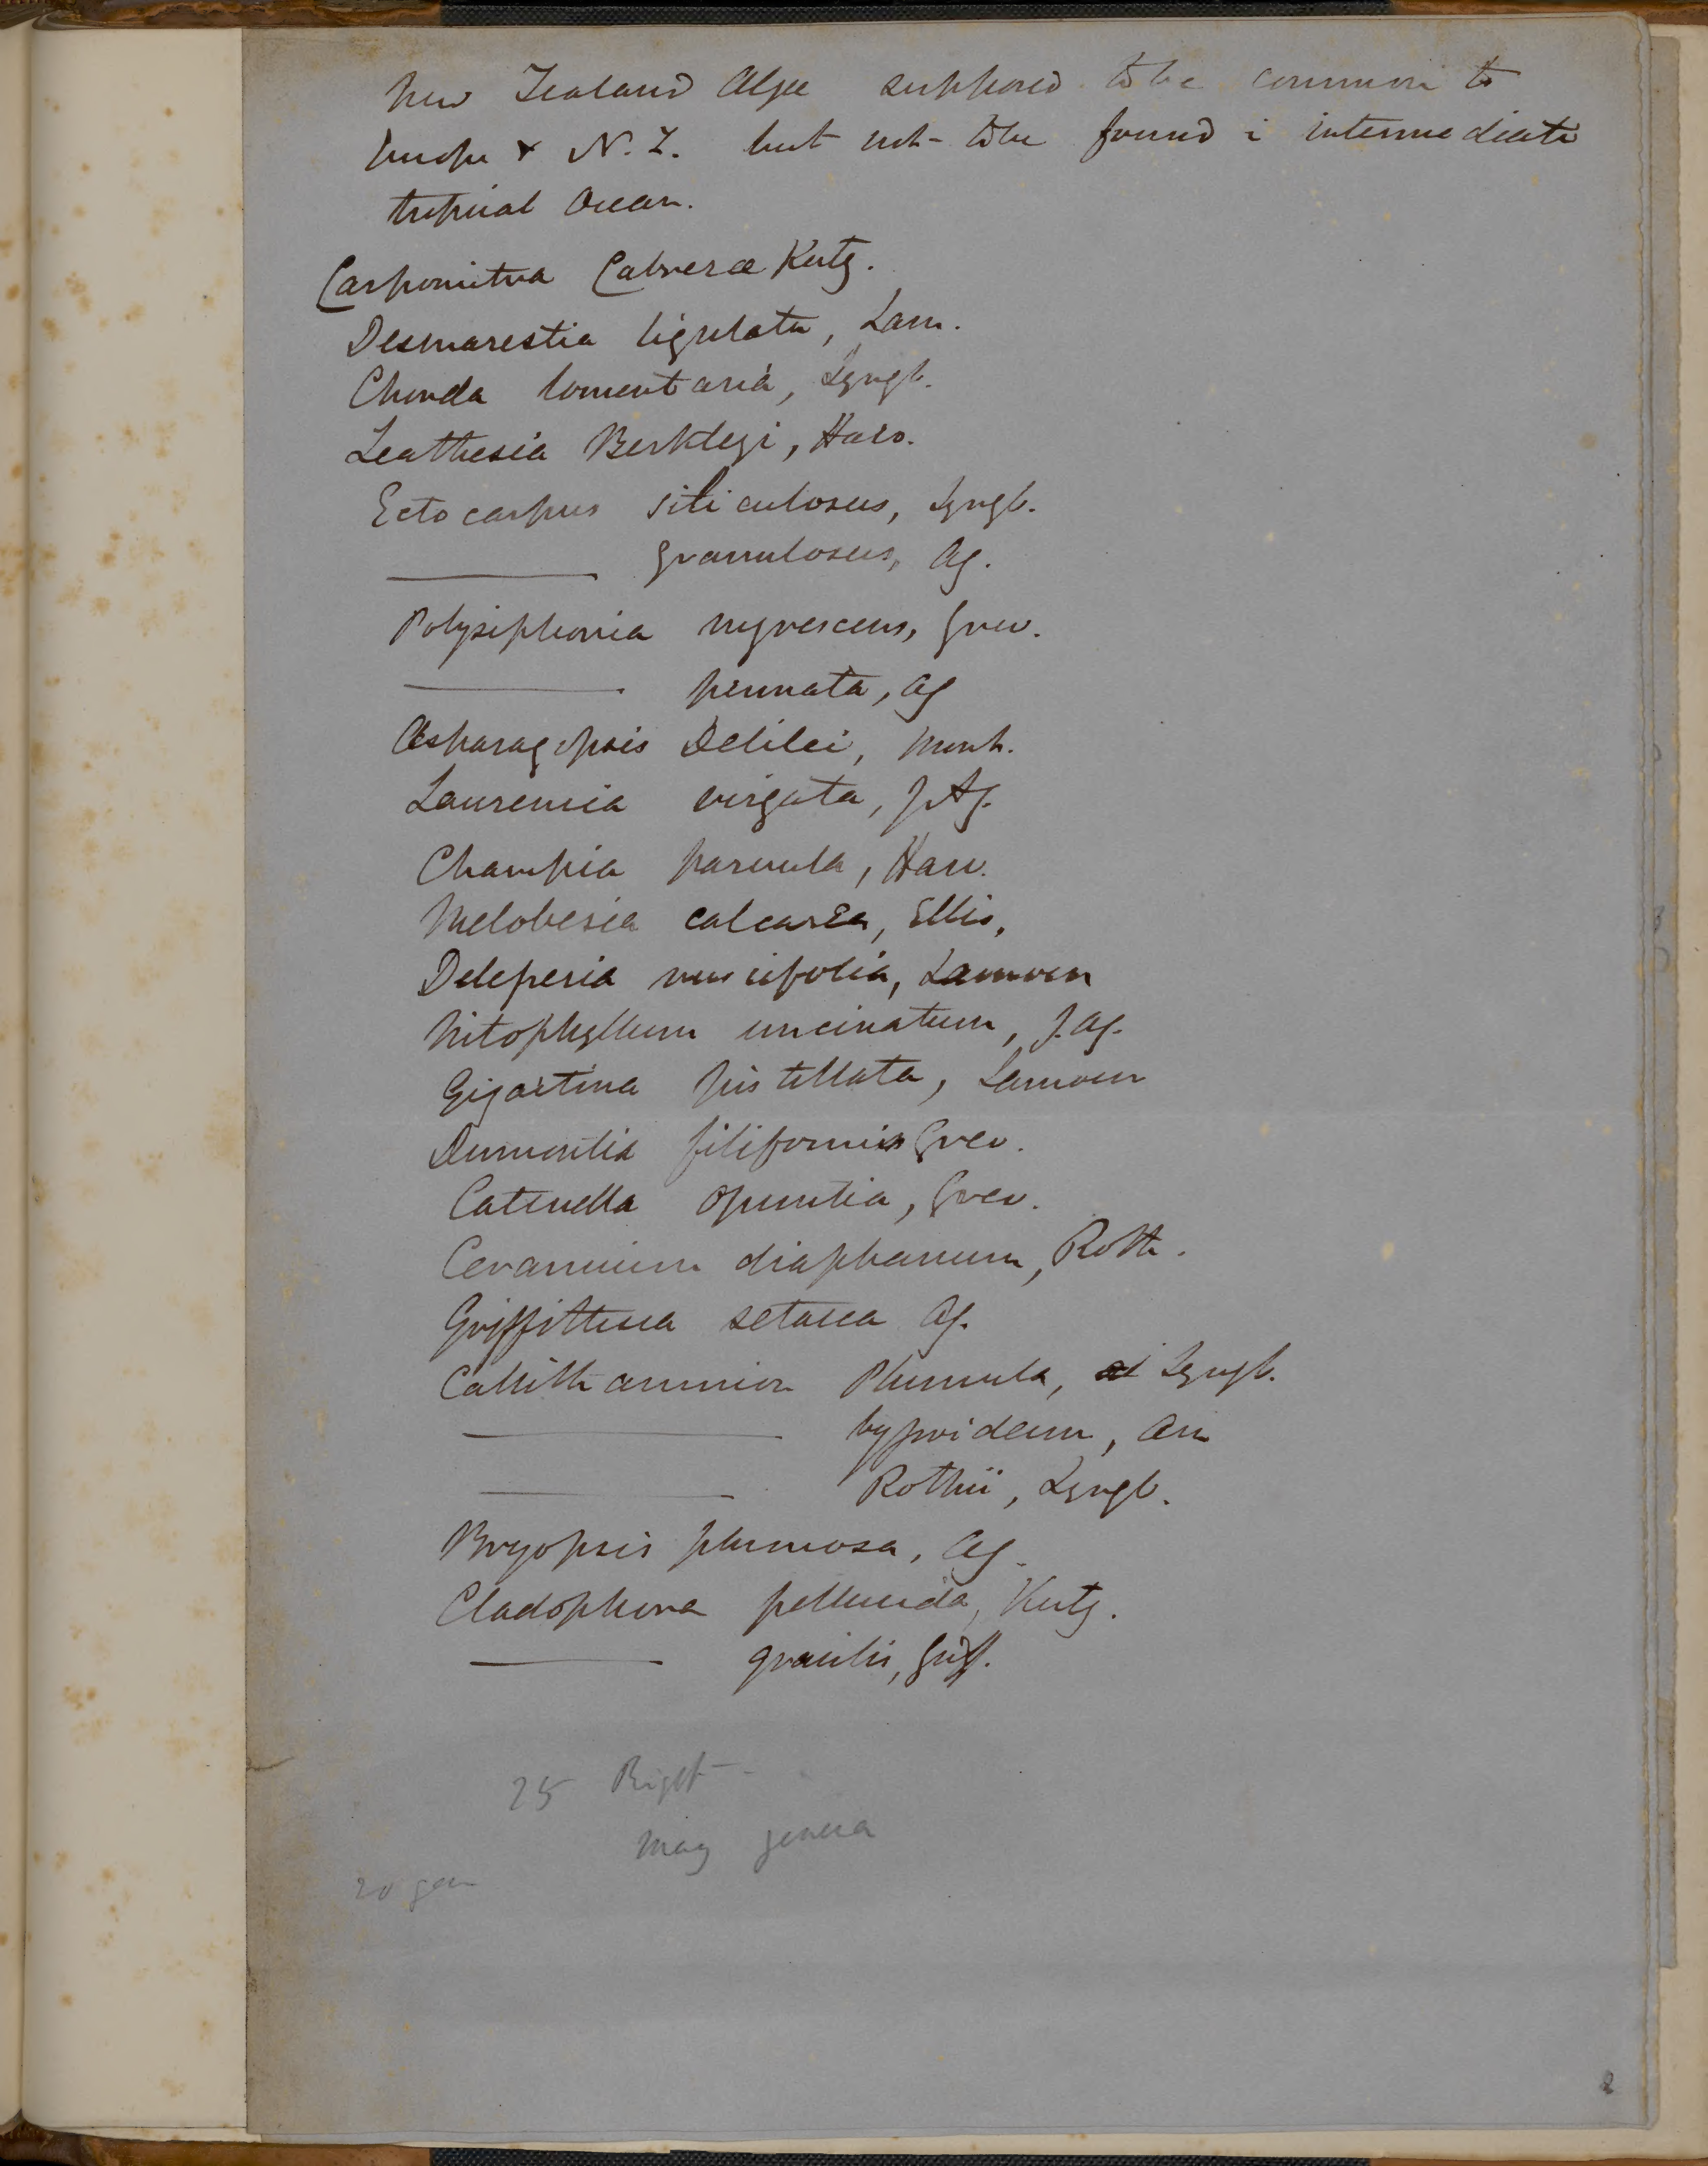 New Zealand Algæ supposed to be common to
Europe & N. Z. but not to be found i intermediate
tropical Ocean.
Carpomitra Cabreræ Kutz.
Desmarestia ligulata, Lam.
Chorda lomentaria, Lyngb.
Leathesia Berkleyi, Harv.
Ectocarpus siliculosus, Lyngb.
——— granulosus, Ag.
Polysiphonia nigrescens, Grev.
——— pennata, Ag
Asparagopsis Delilei, Mont.
Laurencia virgata, J. Ag.
Champia parvula, Harv.
Melobesia calcarea, Ellis,
Delesseria ruscifolia, Lamour
Nitophyllum uncinatum, J. Ag.
Gigartina pistillata, Lamour
Dumontia filiformis Grev.
Catenella Opuntia, Grev.
Ceramium diaphanum, Roth.
Griffithsia setacea Ag.
Callithamnion Plumula, Lyngb.
——— hypnoideum,
——— Rothii, Lyngb.
Bryopsis plumosa, Ag.
Cladophora pellucida, Kutz.
——— gracilis, Griff.
25 Right
May genera
20 gen
2